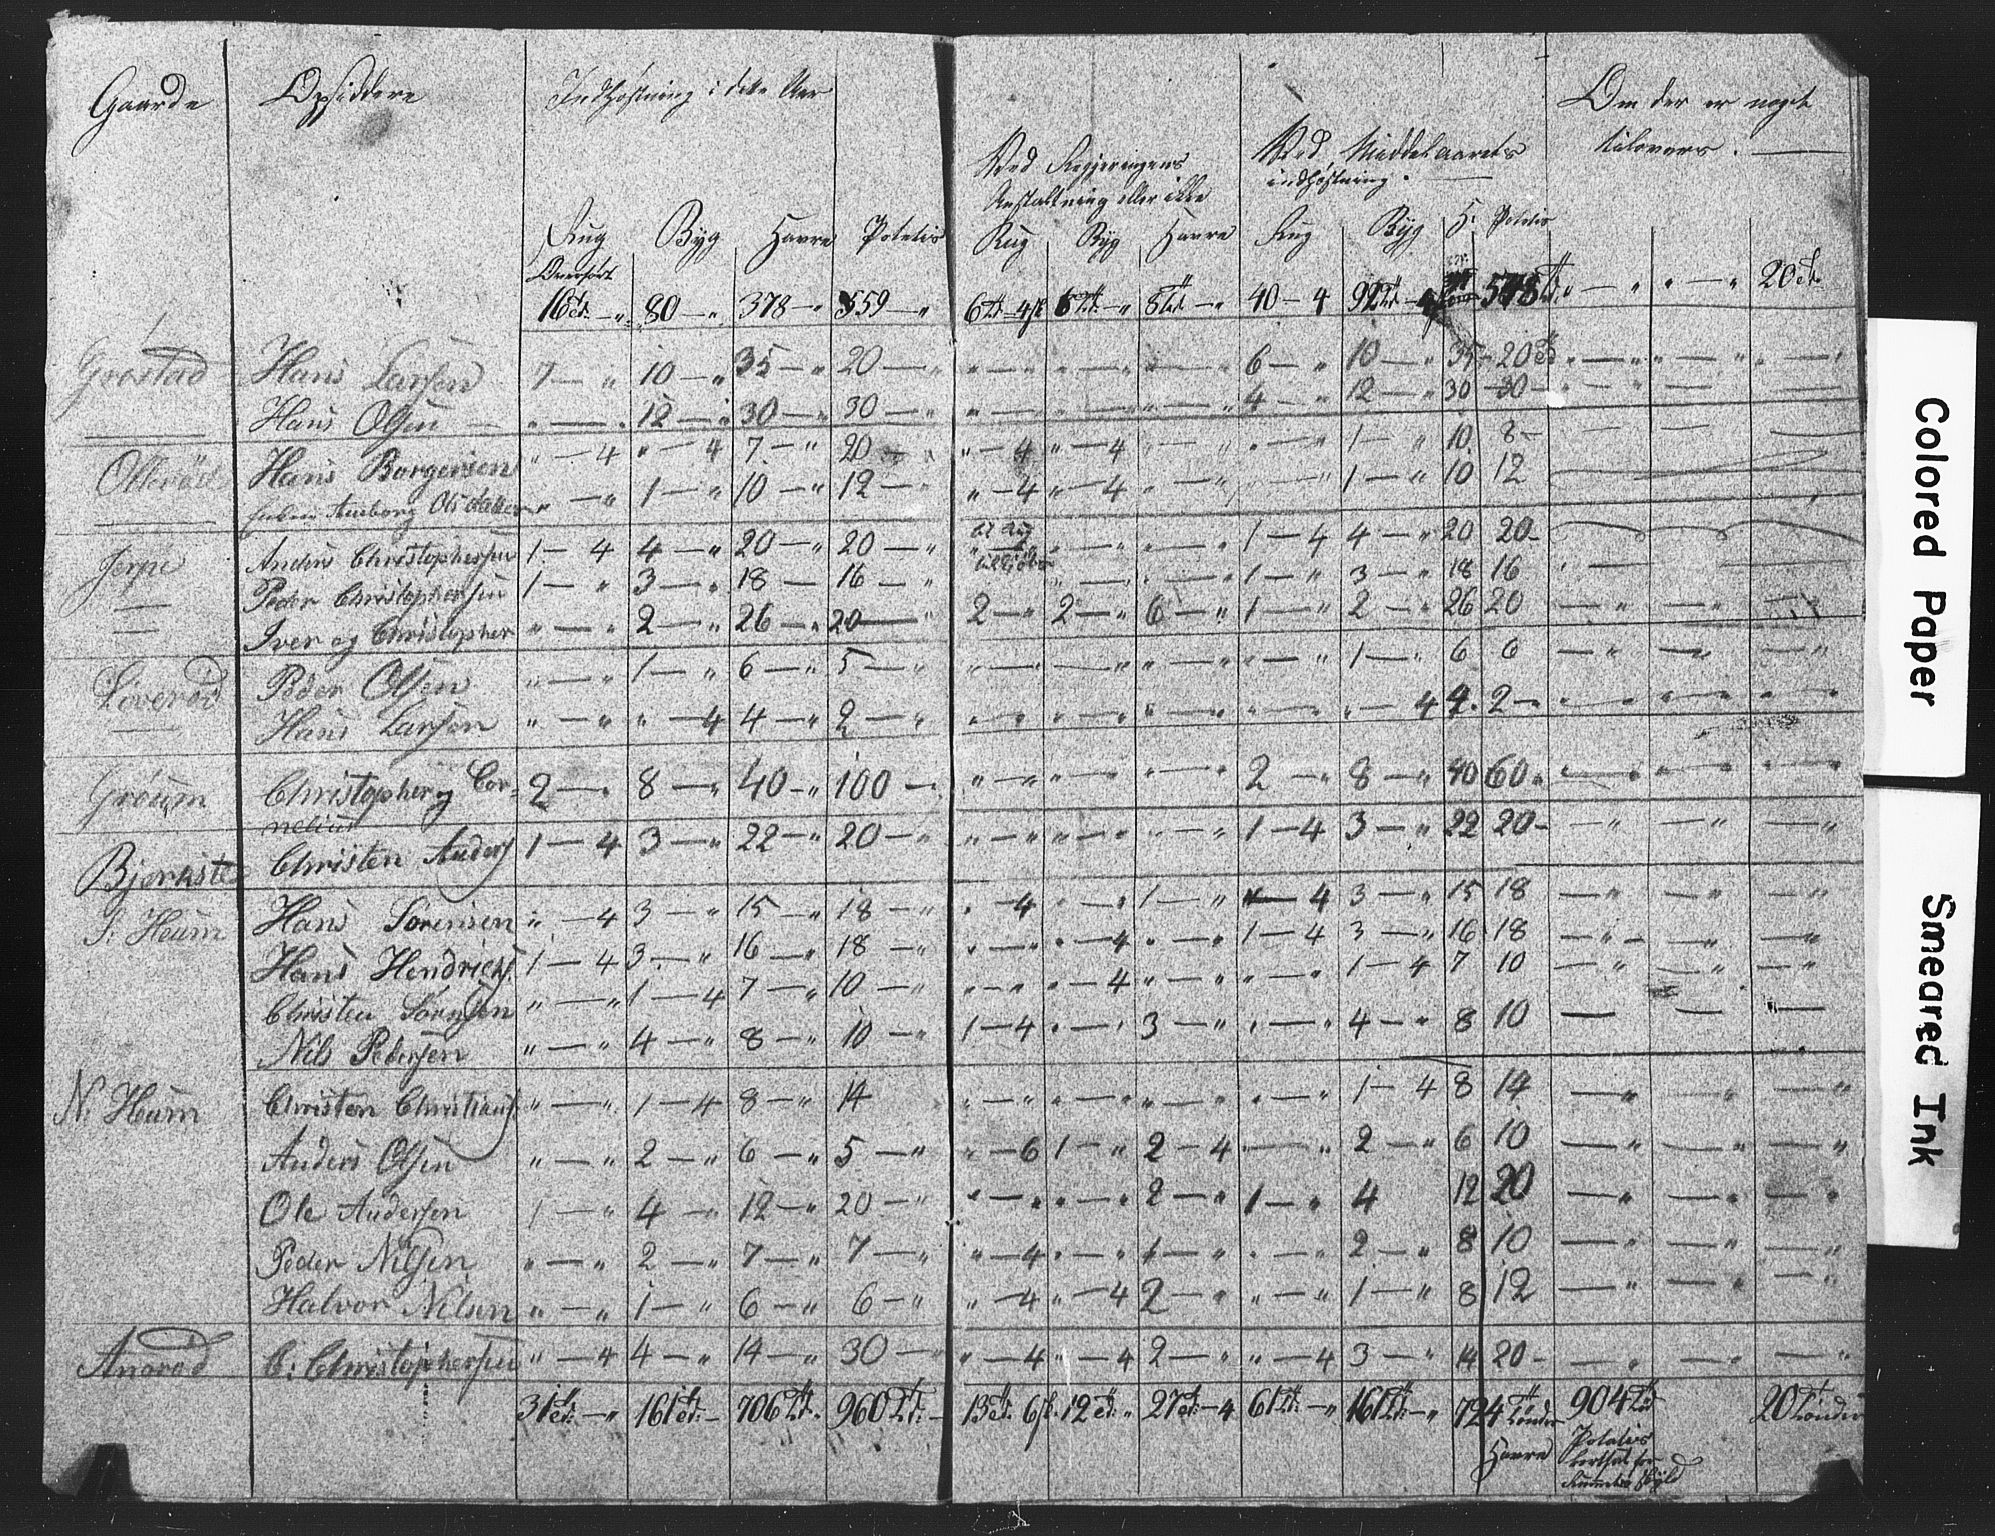 Gaarde Opsiddere Indhøstning i dette Aar Om der er noget
tilovers. —
Ved Regjeringens Ved Middelaarets
Anstaltning eller ikke indhøstning. —
Rug Byg Havre Potetis Rug Byg Havre Rug Byg H: Potetis
Overført
16 td: — „ 80 — „ 378 — „ 559 — „ 6 td — 4 6 td: — „ 8 td — „ 40 — 4 92 td — 4 578 td „ — „ „ — „ 20 td:
Grostad Hans Larsen 7 — „ 10 — „ 35 — „ 20 — „ „ — „ „ — „ „ — „ 6 — „ 10 — „ 35 — 20 td „ — „ „ — „ „ — „
Hans Olsen — „ — „ 12 — „ 30 — „ 30 — „ „ — „ „ — „ „ — „ 4 — „ 12 — „ 30 — 30 — „ — „ „ —
Hans Borgersen „ — 4 „ — 4 7 — „ 20 — „ „ — 4 „ — 4 „ — „ „ — „ 1 — „ 10 8 — — — —
Amborg Olsdatter „ — „ 1 — „ 10 — „ 12 — „ „ — 4 „ — 4 „ — „ „ — „ 1 — „ 10 12
Jerpe Anders Christophersen 1 — 4 4 — „ 20 — „ 20 — „ „ — „ „ — „ 1 — 4 4 — „ 20 20 —
Peder Christophersen 1 — „ 3 — „ 18 — 16 — „ „ — „ „ — „ 1 — „ 3 — „ 18 16 „ —
Iver og Christopher „ — „ 2 — „ 26 — „ 20 — „ 2 — „ 2 — „ 6 — „ 1 — „ 2 — „ 26 20 — „ — „ —
Liverød Peder Olsen „ — „ 1 — „ 6 — „ 5 — „ „ — „ — „ „ — „ „ — „ 1 — „ 6 6 — „ — — „
Hans Larsen „ — „ „ — 4 4 — „ 2 — „ „ — „ „ — „ „ — „ „ — „ „ — 4 4. 2 — „ „ — „ „ — „ „ — „
Grøum Christopher og Cor= 2 — „ 8 — „ 40 — „ 100 — „ „ — „ „ — „ „ — „ 2 — „ 8 — „ 40 60 „ „ — „ „ — „ „ — „
nelius
Bjerkste Christen Anders 1 — 4 3 — „ 22 — „ 20 — „ „ — „ „ — „ „ — „ 1 — 4 3 — „ 22 20 — — „ — „ — „
S: Heum Hans Sørensen „ — 4 3 — „ 15 — „ 18 — „ „ — 4 „ — „ 1 — „ — 4 3 — „ 15 18 — „ — „ — „
Hans Hendrichs. 1 — 4 3 — „ 16 — „ 18 — „ „ — „ „ — 4 „ — „ 1 — 4 3 — „ 16 18 — „ — — „ — „
Christen Sørnsen „ — „ 1 — 4 7 — „ 10 — „ „ — „ „ — 4 „ — „ „ — „ 1 — 4 7 10 — „ — „ — „
Nils Pedersen „ — „ 4 — „ 8 — „ 10 — „ 1 — 4 „ — „ 3 — „ „ — „ 4 — „ 8 10 — — „ —
N: Heum Christen Christians „ — „ 1 — 4 8 — „ 14 „ — „ „ — „ „ — „ „ — „ 1 — 4 8 14 — „ — „ — „
Anders Olsen „ — „ 2 — „ 6 — „ 5 — „ „ — 6 1 — „ 2 — 4 „ — „ 2 — „ 6 10 — „ — „ — „
Ole Andersen 1 — „ 4 — „ 12 — „ 20 — „ „ — „ „ — „ 2 — „ 1 — „ 4 12 20 — „ — „ — „
Peder Nilsen „ — „ 2 — „ 7 — „ 7 — „ „ — 4 „ — „ 1 — „ „ — „ 2 — „ 8 10 — „ — „ — „
Halvor Nilsen „ — „ 1 — „ 6 — „ 6 — „ „ — 4 „ — 4 2 — „ „ — „ 1 — „ 8 12 — „ — „ — „
Anorød C: Christophersen „ — 4 4 — „ 14 — „ 30 — „ „ — 4 „ — 4 2 — „ „ — 4 3 — „ 14 20 — — „ — „ — „
31 td: — „ 161 td: — 706 td: „ 960 td: — 13 td. 6 12 td: „ 27 td: — 4 61 td: — „ 161 td: — „ 724 Tønder 904 td 20 Tønder
Havre Potatis
Colored Paper
Smeared Ink